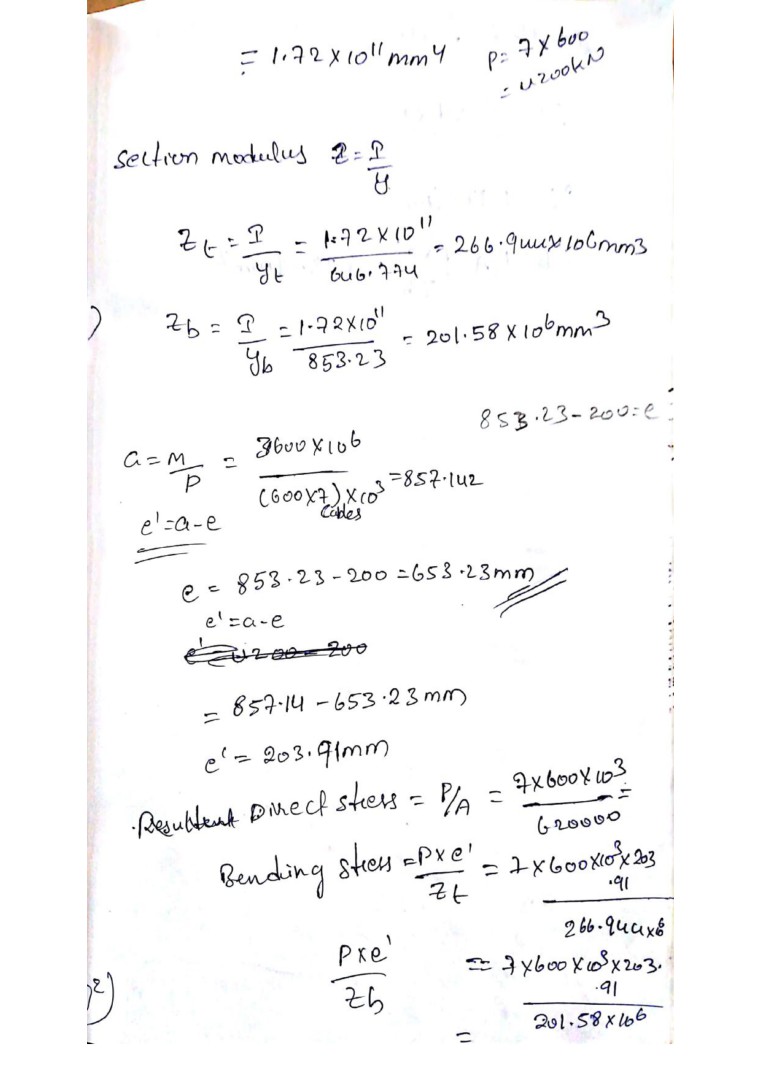 = 1.72 × 10¹¹ mm4 p = 7 × 600
= 4200kN
Section modulus Z = I/y
Zt = I/yt = 1.72 × 10¹¹/646.774 = 266.944 × 106mm3
Zb = I/yb = 1.72×10¹¹/853.23 = 201.58 × 10⁶mm³
853.23 - 200 = e
a = M/P = 3600 × 106/(600×7) × 10³ = 857.142
Cables
e' = a - e
e = 853.23 - 200 = 653.23mm
e' = a - e
e' = 4200 - 200
= 857.14 - 653.23mm
e' = 203.91mm
Resultent Direct stress = P/A = 7×600×10³/620000 =
Bending stress = P×e'/Zt = 7×600×10³×203.91/266.944×6
P×e'/Zb = 7×600×10³×203.91/201.58×106
=
2)